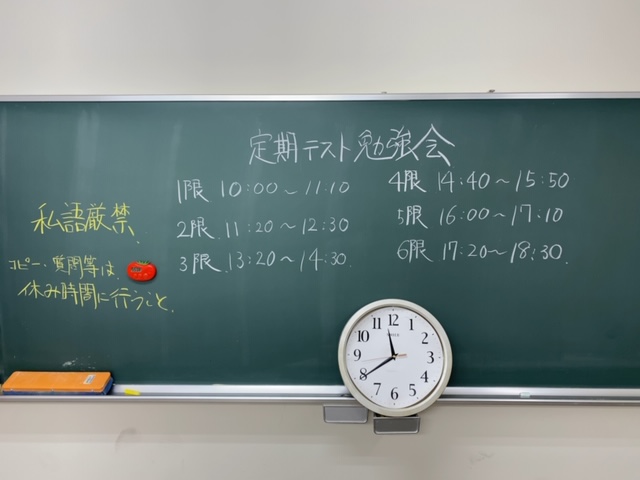 定期テスト勉強会
1限 10:00～11:10
2限 11:20～12:30
3限 13:20～14:30
4限 14:40～15:50
5限 16:00～17:10
6限 17:20～18:30
私語厳禁
コピー・質問等は
休み時間に行うこと
12
1
2
3
4
5
6
7
8
9
10
11